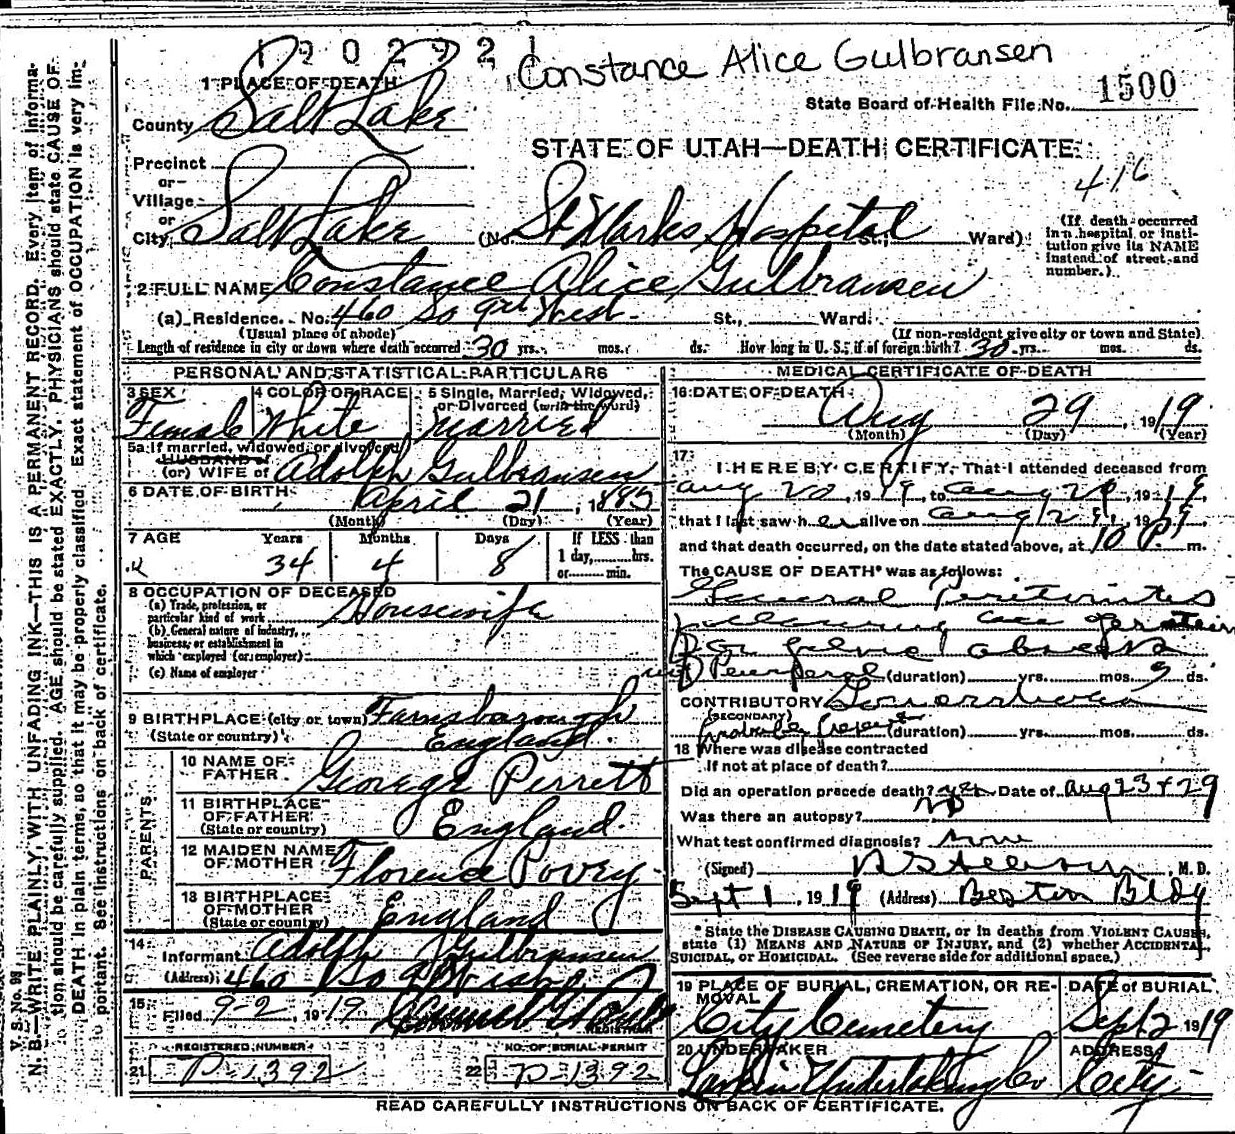 1 9 0 2 9 2 1
Constance Alice Gulbransen
1 PLACE OF DEATH
State Board of Health File No. 1500
County Salt Lake
STATE OF UTAH—DEATH CERTIFICATE
416
Precinct
or
Village
or
City Salt Lake (No. St Marks Hospital St., Ward)
(If death occurred in a hospital or institution give its NAME instead of street and number.)
2 FULL NAME Constance Alice Gulbransen
(a) Residence. No. 460 So 9th West St., Ward.
(Usual place of abode) (If non-resident give city or town and State)
Length of residence in city or town where death occurred 30 yrs. mos. ds. How long in U. S. if of foreign birth? 30 yrs. mos. ds.
PERSONAL AND STATISTICAL PARTICULARS
3 SEX Female
4 COLOR OR RACE White
5 Single, Married, Widowed, or Divorced (write the word) Married
5a If married, widowed, or divorced
HUSBAND of
(or) WIFE of Adolph Gulbransen
6 DATE OF BIRTH April 21, 1885
(Month) (Day) (Year)
7 AGE Years 34 Months 4 Days 8
If LESS than 1 day, hrs. or min.
8 OCCUPATION OF DECEASED
(a) Trade, profession, or particular kind of work Housewife
(b) General nature of industry, business, or establishment in which employed (or employer)
(c) Name of employer
9 BIRTHPLACE (city or town) Farnsborough
(State or country) England
PARENTS
10 NAME OF FATHER George Perrett
11 BIRTHPLACE OF FATHER (State or country) England
12 MAIDEN NAME OF MOTHER Florence Povey
13 BIRTHPLACE OF MOTHER (State or country) England
14 Informant Adolph Gulbransen
(Address) 460 So 9 West
15 Filed 9-2, 1919
REGISTRAR
REGISTERED NUMBER
21 P-1392
NO. OF BURIAL PERMIT
22 P-1392
MEDICAL CERTIFICATE OF DEATH
16 DATE OF DEATH Aug 29, 1919
(Month) (Day) (Year)
17 I HEREBY CERTIFY, That I attended deceased from
Aug 20, 1919, to Aug 29, 1919,
that I last saw her alive on Aug 29, 1919,
and that death occurred, on the date stated above, at 10 P m.
The CAUSE OF DEATH* was as follows:
General Peritonitis
following
pelvic abscess
Puerperal (duration) yrs. mos. 9 ds.
CONTRIBUTORY
(SECONDARY)
probable (duration) yrs. mos. ds.
18 Where was disease contracted
If not at place of death?
Did an operation precede death? yes Date of Aug 23 + 29
Was there an autopsy? No
What test confirmed diagnosis? none
(Signed) M. D.
Sept 1, 1919 (Address) Boston Bldg
*State the DISEASE CAUSING DEATH, or in deaths from VIOLENT CAUSES, state (1) MEANS AND NATURE OF INJURY, and (2) whether ACCIDENTAL, SUICIDAL, or HOMICIDAL. (See reverse side for additional space.)
19 PLACE OF BURIAL, CREMATION, OR REMOVAL City Cemetery
DATE of BURIAL Sept 2 1919
20 UNDERTAKER Larkin Undertaking Co
ADDRESS City
READ CAREFULLY INSTRUCTIONS ON BACK OF CERTIFICATE.
V. S. No. 98
N. B.—WRITE PLAINLY, WITH UNFADING INK—THIS IS A PERMANENT RECORD. Every item of information should be carefully supplied. AGE should be stated EXACTLY. PHYSICIANS should state CAUSE OF DEATH in plain terms, so that it may be properly classified. Exact statement of OCCUPATION is very important. See instructions on back of certificate.